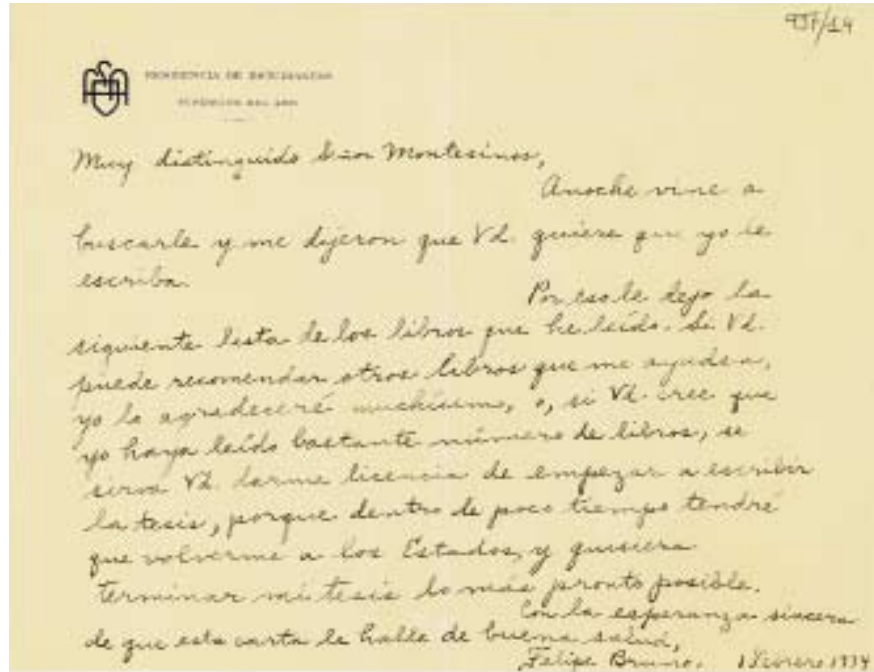 937/14
RESIDENCIA DE ESTUDIANTES
FUNDACION DEL AMO
Muy distinguido Señor Montesinos,
Anoche vine a
buscarle y me dijeron que Vd. quiere que yo le
escriba.
Por eso le dejo la
siguiente lista de los libros que he leído. Si Vd.
puede recomendar otros libros que me ayuden,
yo lo agradeceré muchísimo, o, si Vd. cree que
yo haya leído bastante número de libros, se
sirva Vd. darme licencia de empezar a escribir
la tesis, porque dentro de poco tiempo tendré
que volverme a los Estados, y quisiera
terminar mi tesis lo más pronto posible.
Con la esperanza sincera
de que esta carta le halle de buena salud,
Felipe Bruno. 1 Febrero 1934